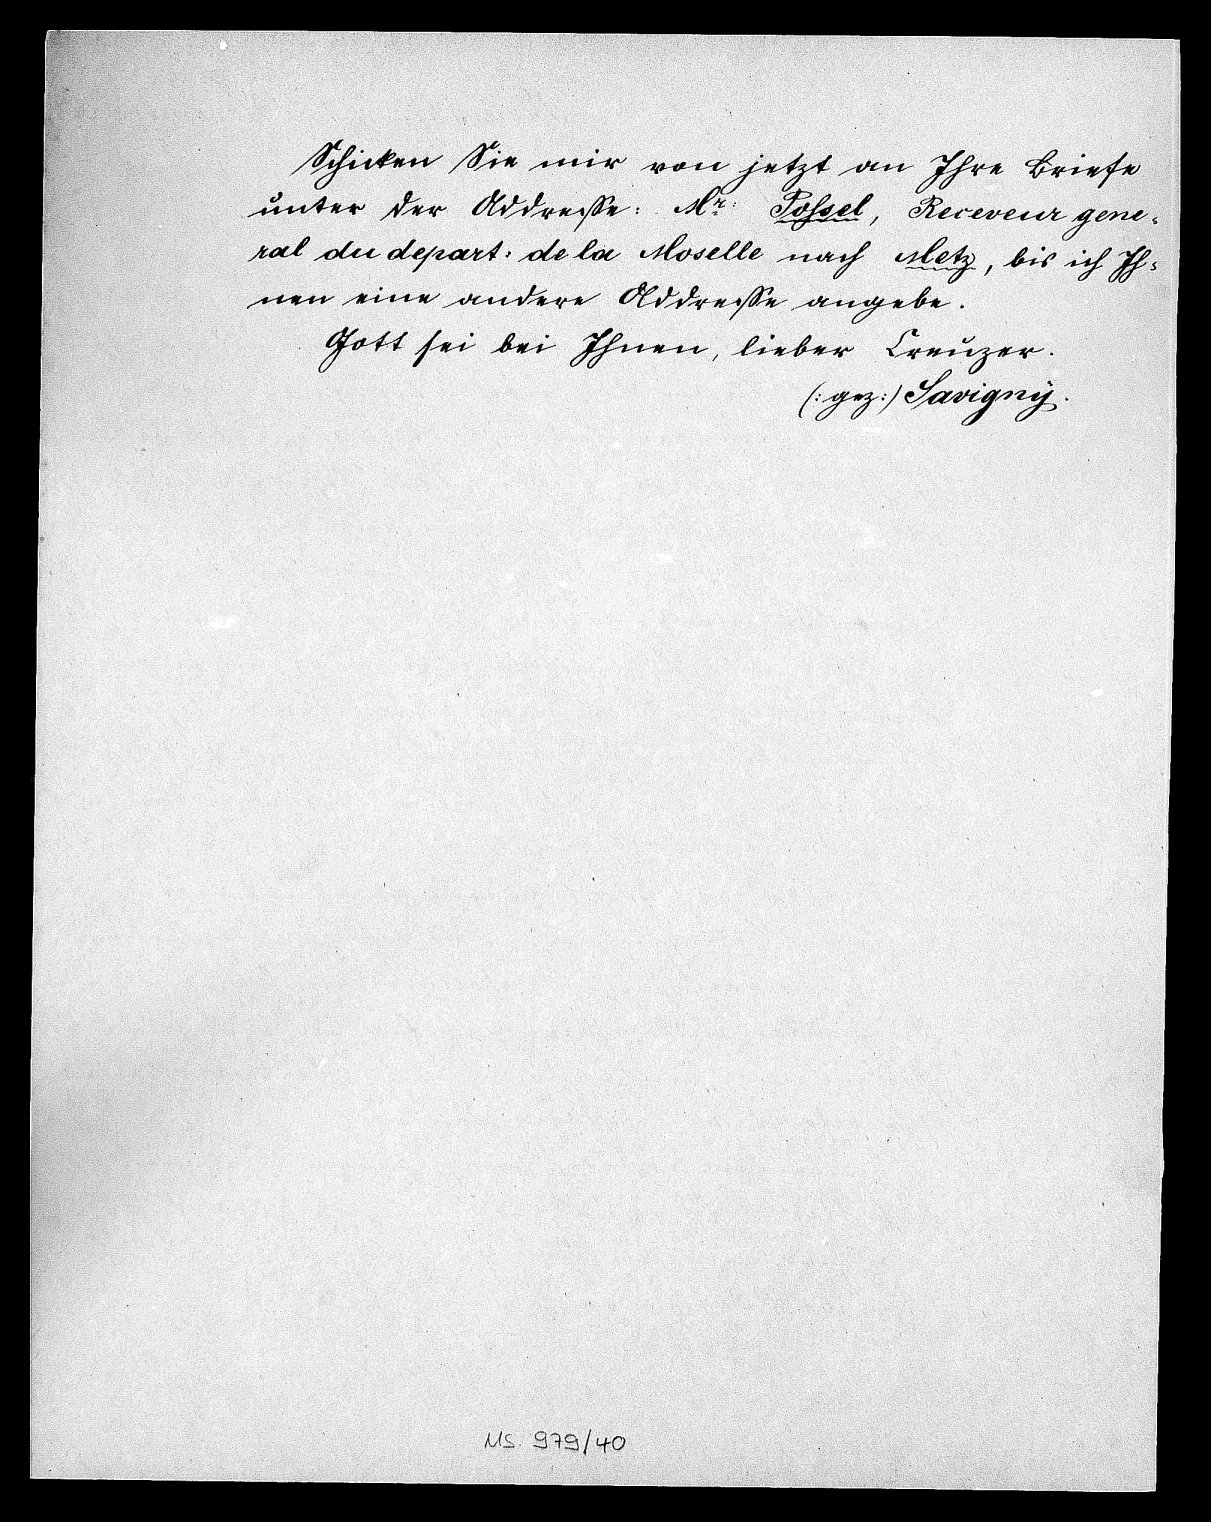 Schicken Sie mir von jetzt an Ihre Briefe
unter der Addresse: Mr: Possel, Receveur gene-
ral du depart: de la Moselle nach Metz, bis ich Ih-
nen eine andere Addresse angebe.
Gott sei bei Ihnen, lieber Creuzer.
(:gez:) Savigny.
Ms. 979/40